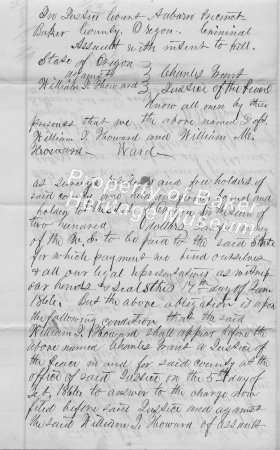 In Justice Court Auburn Precinct
Baker County, Oregon. Criminal
Assault with intent to kill.
State of Oregon
against } Charles
William T. Howard } Justice of the Peace
Know all men by these
presents that we the above named Deft.
William T. Howard and William Mc.
Howard – Ward –
as surety and free holders of
said county who held and firmly bound and
holden to
two hundred dollars
of the U.S. to be paid to the said State
for which payment we bind ourselves
& all our legal representatives as witness
our hands & seals this 17th day of Jan
186 . But the above obligation is upon
the following condition, that the said
William T. Howard shall appear before the
above named Charles a Justice of
the peace in and for said county at the
office of said Justice on the 5th day of
Feb, 186 to answer to the charge now
filed before said Justice and against
the said William T. Howard of assault
Property of Baker
Heritage Museum